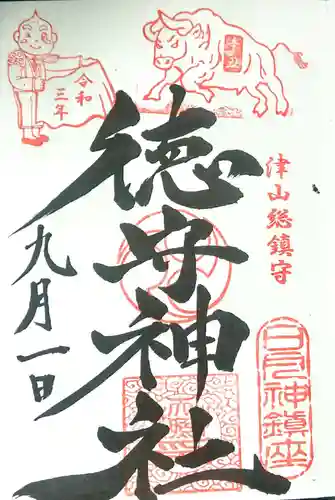 辛丑
令和
三年
津山総鎮守
徳守神社
九月一日
神鎮座